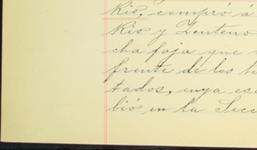 Kio, compró á
Kio y Zenteno
cha foja que
frente de los h
tados, cuya es
bió en la Secc